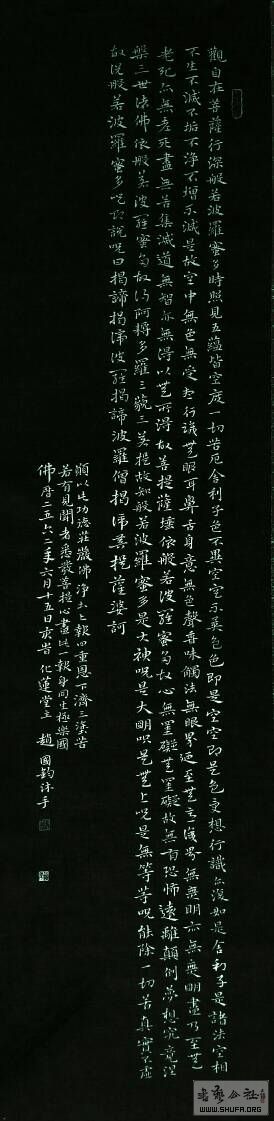 觀自在菩薩行深般若波羅蜜多時照見五蘊皆空度一切苦厄舍利子色不異空空不異色色即是空空即是色受想行識亦復如是舍利子是諸法空相
不生不滅不垢不淨不增不減是故空中無色無受想行識無眼耳鼻舌身意無色聲香味觸法無眼界乃至無意識界無無明亦無無明盡乃至無
老死亦無老死盡無苦集滅道無智亦無得以無所得故菩提薩埵依般若波羅蜜多故心無罣礙無罣礙故無有恐怖遠離顛倒夢想究竟涅
槃三世諸佛依般若波羅蜜多故得阿耨多羅三藐三菩提故知般若波羅蜜多是大神咒是大明咒是無上咒是無等等咒能除一切苦真實不虛
故說般若波羅蜜多咒即說咒曰揭諦揭諦波羅揭諦波羅僧揭諦菩提薩婆訶
願以此功德莊嚴佛淨土上報四重恩下濟三塗苦
若有見聞者悉發菩提心盡此一報身同生極樂國
佛曆二五六二年六月十五日於 化蓮堂主 趙國鈞沐手
書法公社
WWW.SHUFA.ORG